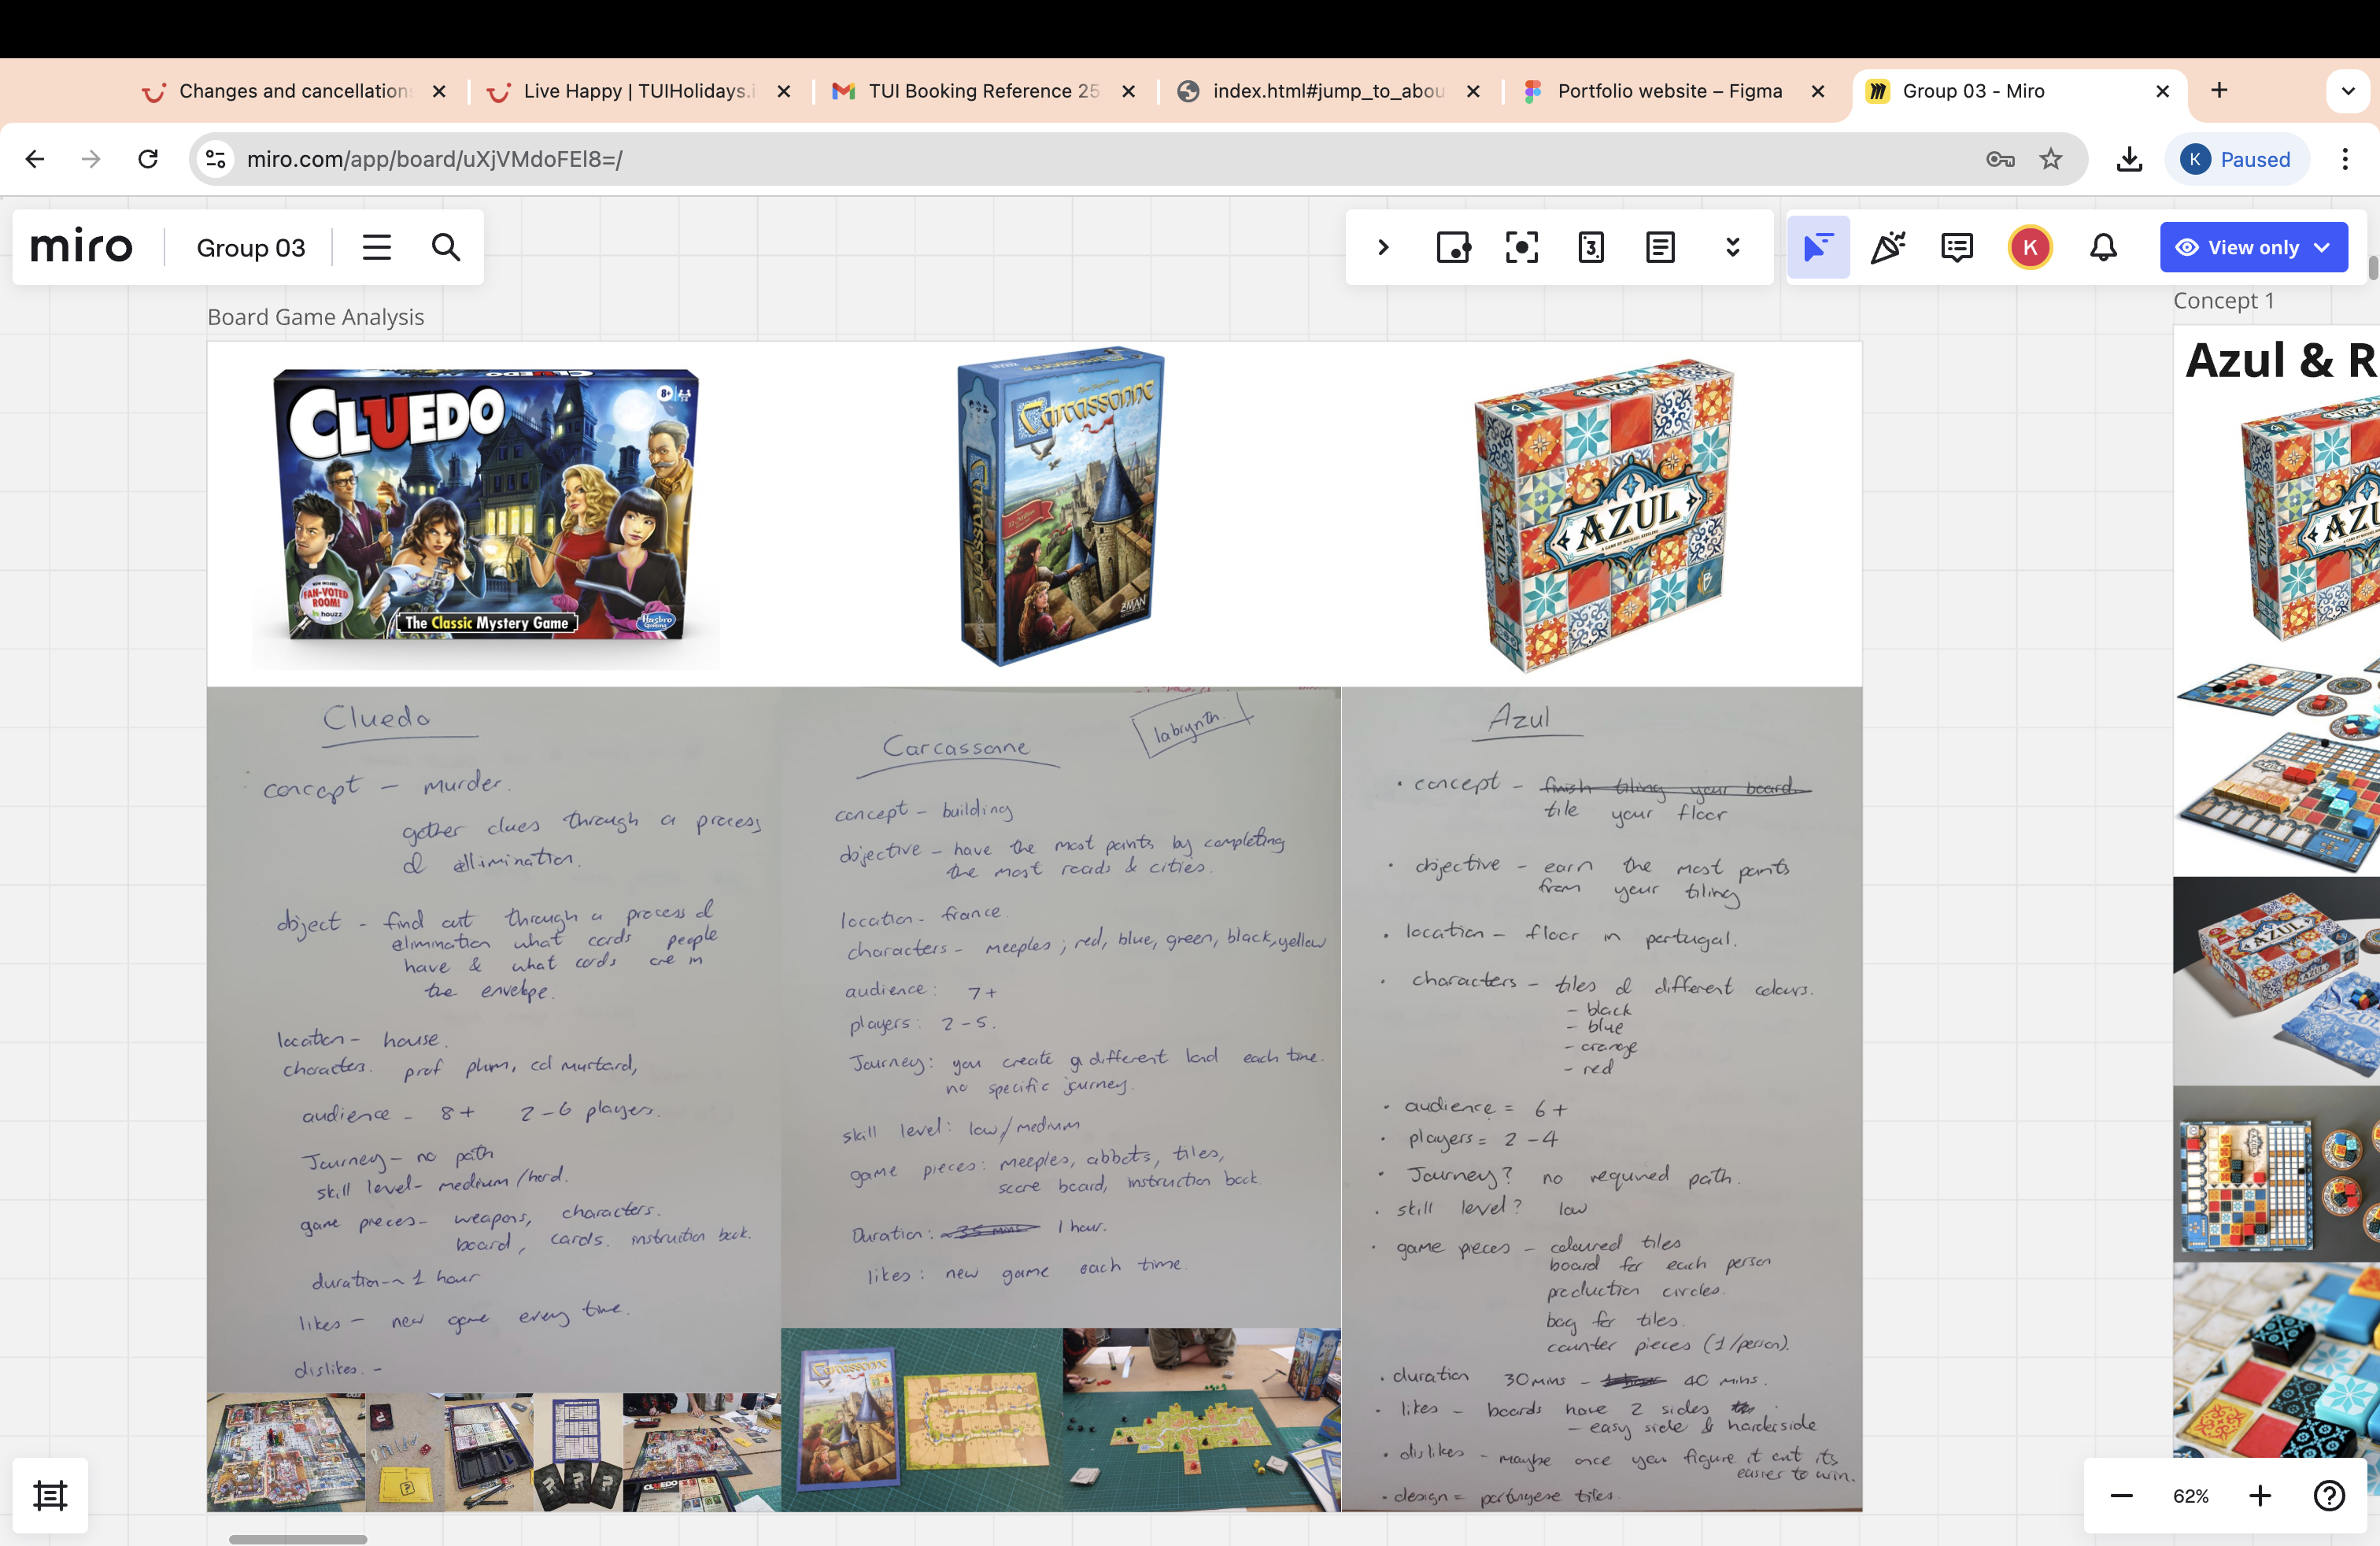 Changes and cancellation
Live Happy | TUIHolidays.i
TUI Booking Reference 25
index.html#jump_to_abou
Portfolio website – Figma
Group 03 - Miro
miro.com/app/board/uXjVMdoFEl8=/
K
Paused
miro
Group 03
3
K
View only
Board Game Analysis
Concept 1
Azul & R
CLUEDO
8+
FAN-VOTED
ROOM!
houzz
The Classic Mystery Game
Hasbro
Carcassonne
Carcassonne
Z-MAN
AZUL
AZUL
Cluedo
concept – murder.
gather clues through a process
of ellimination.
object - find out through a process of
elimination what cards people
have & what cards are in
the envelope.
location – house.
characters. prof plum, col murtard,
audience – 8+ 2–6 players.
Journey – no path
skill level – medium/hard.
game pieces – weapons, characters.
board, cards. instruction book.
duration ~ 1 hour
likes – new game every time.
dislikes. –
labrynth.
Carcassone
concept – building
objective – have the most points by completing
the most roads & cities.
location – france.
characters – meeples; red, blue, green, black, yellow
audience: 7+
players: 2–5.
Journey: you create a different land each time.
no specific journey.
skill level: low/medium
game pieces: meeples, abbots, tiles,
score board, instruction book.
Duration: 35 mins 1 hour.
likes: new game each time.
Azul
• concept – finish tiling your board.
tile your floor
• objective – earn the most points
from your tiling
• location – floor in portugal.
• characters – tiles of different colours.
– black
– blue
– orange
– red
• audience = 6+
• players = 2–4
• Journey? no required path.
• skill level? low
• game pieces – coloured tiles
board for each person
production circles.
bag for tiles.
counter pieces (1/person).
• duration 30 mins – 40 mins.
• likes – boards have 2 sides
– easy side & harder side
• dislikes – maybe once you figure it out its
easier to win.
• design = portugese tiles.
Carcassonne
CLUEDO
AZUL
62%